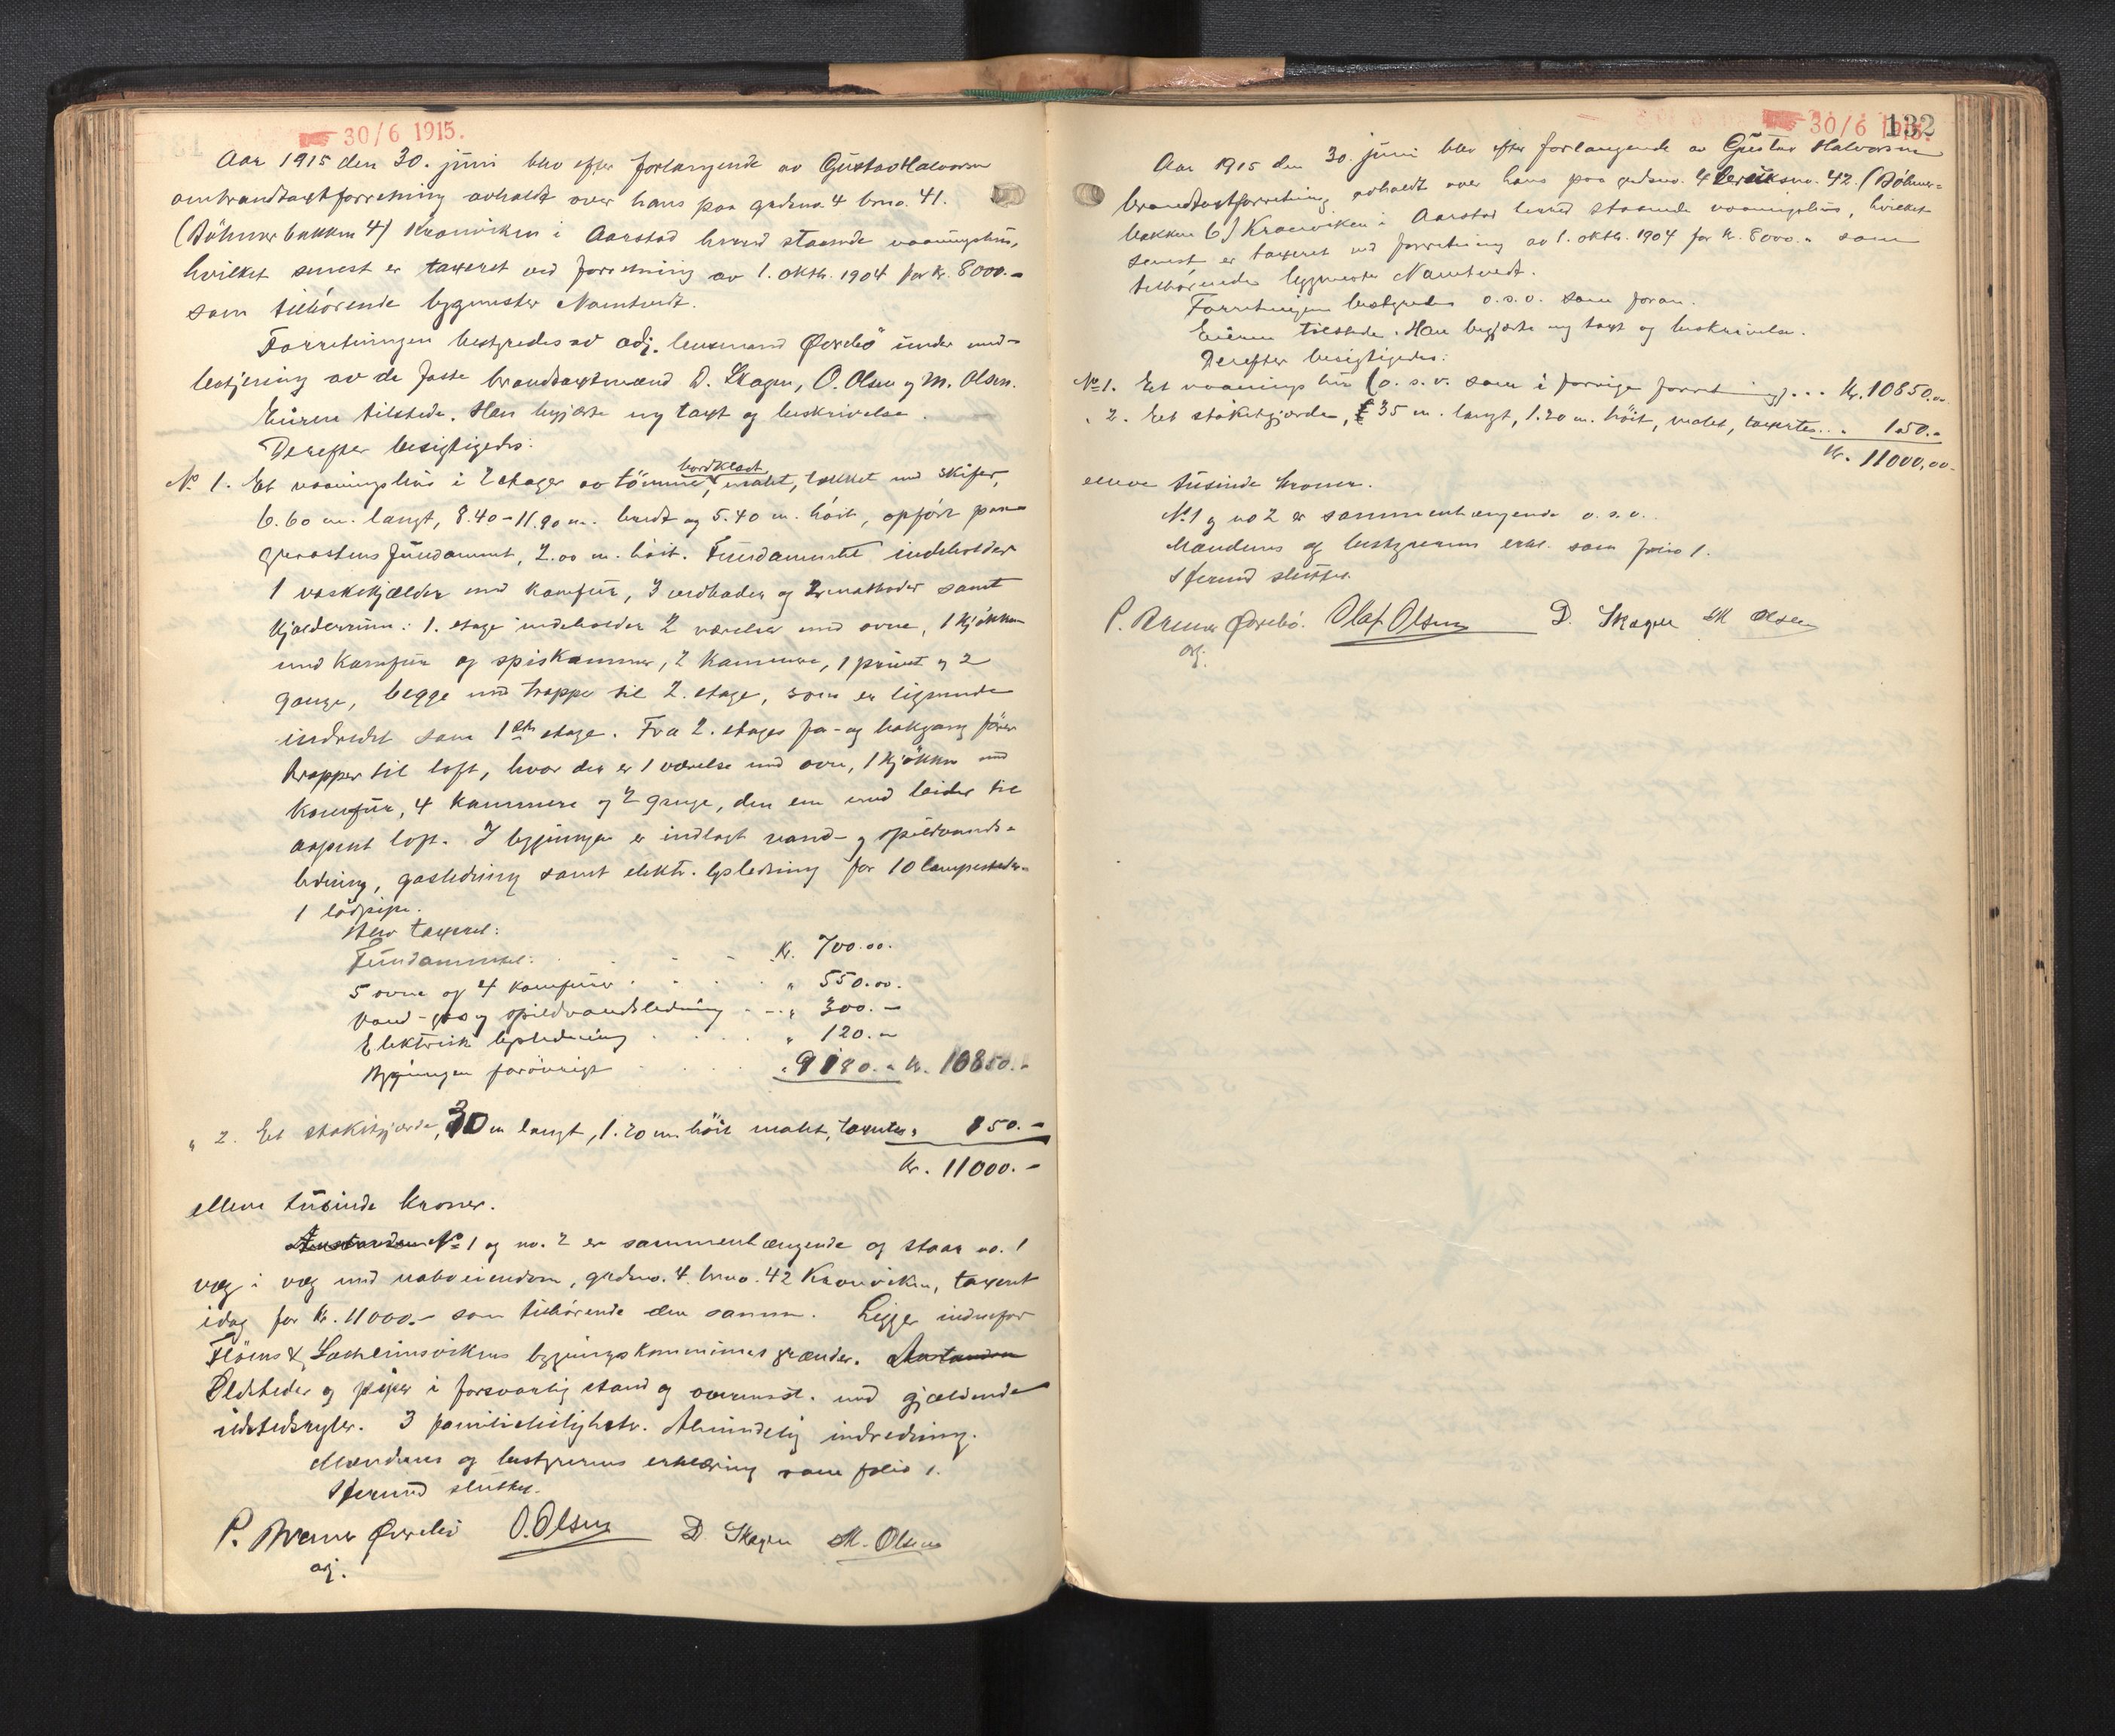 30/6 1915.
Aar 1915 den 30. juni blev efter forlangende av Gustav Halvorsen
ombrandtaxtforretning avholdt over hans paa gardsno. 4 brno. 41.
(Böhmerbakken 4) Kronviken i Aarstad herred staaende vaaningshus,
hvilket senest er taxeret ved forretning av 1. oktb. 1904 for kr. 8000.-
som tilhörende bygmester Namtvedt.
Forretningen bestyredes av adj. lensmand Øvrebö under med-
betjening av de faste brandtaxtmænd D. Skagen, O. Olsen og M. Olsen.
Eieren tilstede. Han begjærte ny taxt og beskrivelse.
Derefter besigtigedes:
No 1. Et vaaningshus i 2 etager av tömmer, bordklædt, malet, tækket med skifer,
6.60 m. langt, 8.40-11.90 m. bredt og 5.40 m. höit, opfört paa
graastens fundament, 2.00 m. höit. Fundamentet indeholder
1 vaskekjælder med komfur, 3 vedboder og 2 matboder samt
kjælderrum: 1. etage indeholder 2 værelser med ovne, 1 kjökken
med komfur og spiskammer, 2 kammere, 1 privet og 2
gange, begge med trappe til 2. etage, som er lignende
indredet som 1ste etage. Fra 2. etages for- og bakgang förer
trapper til loft, hvor der er 1 værelse med ovn, 1 kjökken med
komfur, 4 kammere og 2 gange, den ene med leider til
aapent loft. I bygningen er indlagt vand- og spildvands-
ledning, gasledning samt elektr. lysledning for 10 lampesteder.
1 lödpipe.
Blev taxeret:
Fundamentet: . - - Kr. 700.00.
5 ovne og 4 komfurer . . . . " 550.00.
Vand-gas og spildvandsledning - -. " 300.-
Elektrisk lysledning . . . . " 120.-
Bygningen forövrigt . . . . " 9180.- kr. 10850.-
" 2. Et stakitgjærde, 30 m langt, 1.20 m. höit malet, taxertes " 150.-
Kr. 11000.-
elleve tusinde kroner.
No 1 og no. 2 er sammenhængende og staar no. 1
væg i væg med naboeiendom, gardsno. 4. brno. 42 Kronviken, taxeret
idag for kr. 11000.- som tilhörende den samme. Ligger indenfor
Flöens & Lachseimsvikens bygningskommunes grænder.
Ildsteder og piper i forsvarlig stand og overensst. med gjældende
ildstedsregler. 3 familieleiligheter. Almindelig indredning.
Mændenes og bestyrerens erklæring som folio 1.
Hermed sluttet.
P. Werner Øvrebö O. Olsen D. Skagen M. Olsen
adj.
30/6 1915.
132
Aar 1915 den 30. juni blev efter forlangende av Gustav Halvorsen
brandtaxtforretning avholdt over hans paa gardsno. 4 bruksno. 42. (Böhmer-
bakken 6) Kronviken i Aarstad herred staaende vaaningshus, hvilket
senest er taxeret ved forretning av 1. oktb. 1904 for kr. 8000.- som
tilhörende bygmester Namtvedt.
Forretningen bestyredes o.s.v. som foran.
Eieren tilstede. Han begjærte ny taxt og beskrivelse.
Derefter besigtigedes:
No 1. Et vaaningshus (o.s.v. som i forrige forretning) ... Kr. 10850.-
" 2. Et stakitgjærde, 35 m. langt, 1.20 m. höit, malet, taxertes .. . 150.-
Kr. 11000,00-
elleve tusinde kroner.
No 1 og no 2 er sammenhængende o.s.v.
Mændenes og bestyrerens erkl. som folio 1.
Hermed sluttet.
P. Werner Øvrebö. Olaf Olsen D. Skagen M Olsen
adj.